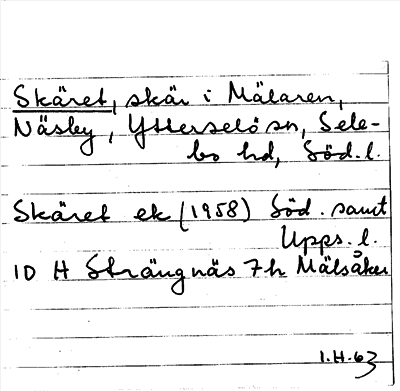 Skäret, skär i Mälaren,
Näsby, Ytterselö sn, Sele-
bo hd, Söd. l.
Skäret ek (1958) Söd. samt
Upps. l.
10 H Strängnäs 7h Mälsåker
I.H. 63